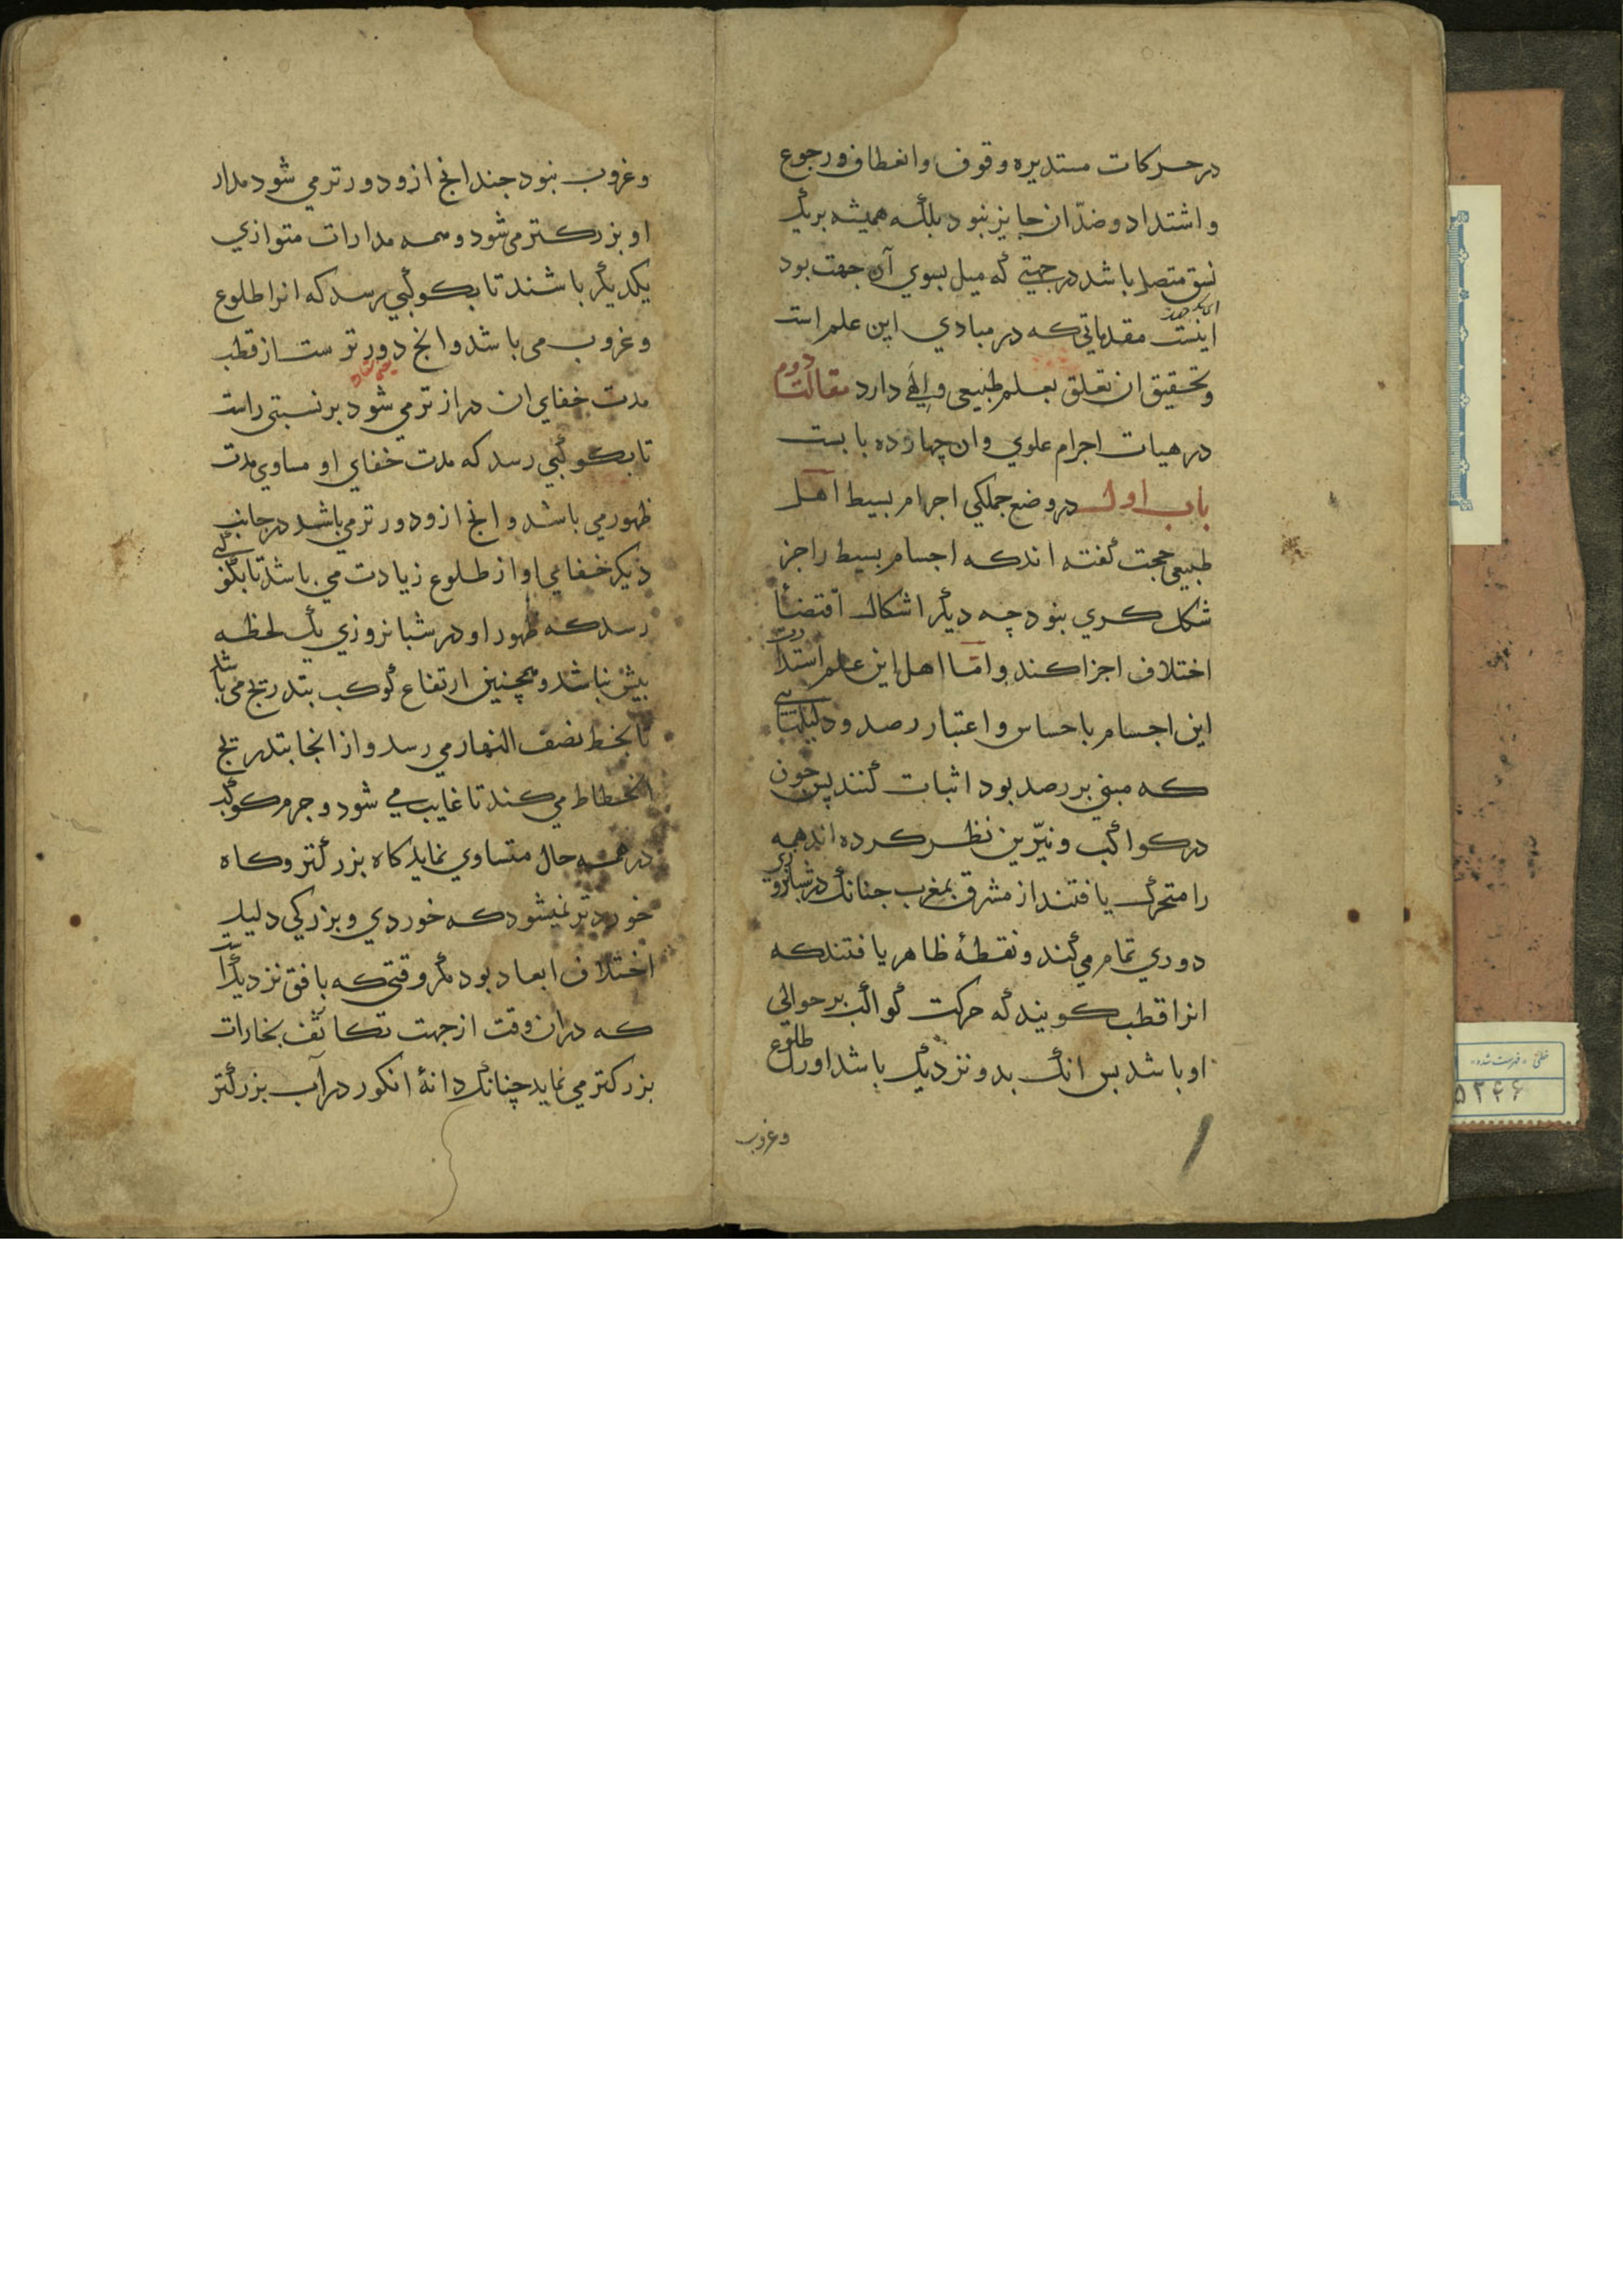 درحرکات مستدیره وقوف وانعطاف ورجوع
واشتداد وضدّ ان جایز نبود بلکه همیشه بریک
نسق متصل باشد درجهتی که میل بسوي آن جهت بود
اینست مقدماتی که در مبادي این علم است
وتحقیق ان تعلق بعلم طبیعی والهی دارد مقالت دوم
در هیات اجرام علوي وان چهارده بابست
باب اول در وضع جملکي اجرام بسیط اهل
طبیعی حجت گفته اندکه اجسام بسیط را جز
شکل کري نبود چه دیگر اشکال اقتضاء
اختلاف اجزا کند وامّا اهل این علم استدارت
این اجسام باحساس واعتبار رصد ودلیلهایی
که مبنی بر رصد بود اثبات کنند پس جون
درکواکب ونیّرین نظر کرده اند همه
را متحرک یافتند از مشرق بمغرب جنانک درشبانروزی
دوري تمام مي کند ونقطهٔ ظاهر یافتندکه
انرا قطب کویند که حرکت کواکب بر حوالی
او باشد بس انک بدو نزدیک باشد اورا طلوع
وغروب
وغروب نبود جندانج ازو دورتر می شود مدار
او بزرکتر می شود وهمه مدارات متوازي
یکدیگر باشند تا بکوکبي رسد که انرا طلوع
وغروب می باشد وانج دورترست از قطب
مدت خفاي ان درازتر می شود برنسبتی راست
تا بکوکبي رسد که مدت خفاي او مساوي مدت
ظهور می باشد وانج ازو دورتر می باشد درجانب
دیکر خفاي او از طلوع زیادت می باشد تا بکوکبی
رسد که ظهور او در شبانروزي یک لحظه
بیش نباشد وهمچنین ارتفاع کوکب بتدریج می باشد
تا بخط نصف النهار می رسد واز انجا بتدریج
انحطاط می کند تا غایب می شود وجرم کوکب
درهمه حال متساوي نماید کاه بزرکتر وکاه
خوردتر نمیشود که خوردي وبزرکی دلیل
اختلاف ابعاد بود مگر وقتی که بافق نزدیکست
که دران وقت از جهت تکاثف بخارات
بزرکتر می نماید چنانک دانهٔ انکور درآب بزرکتر
خطی - فهرست شده
۵۲۴۶